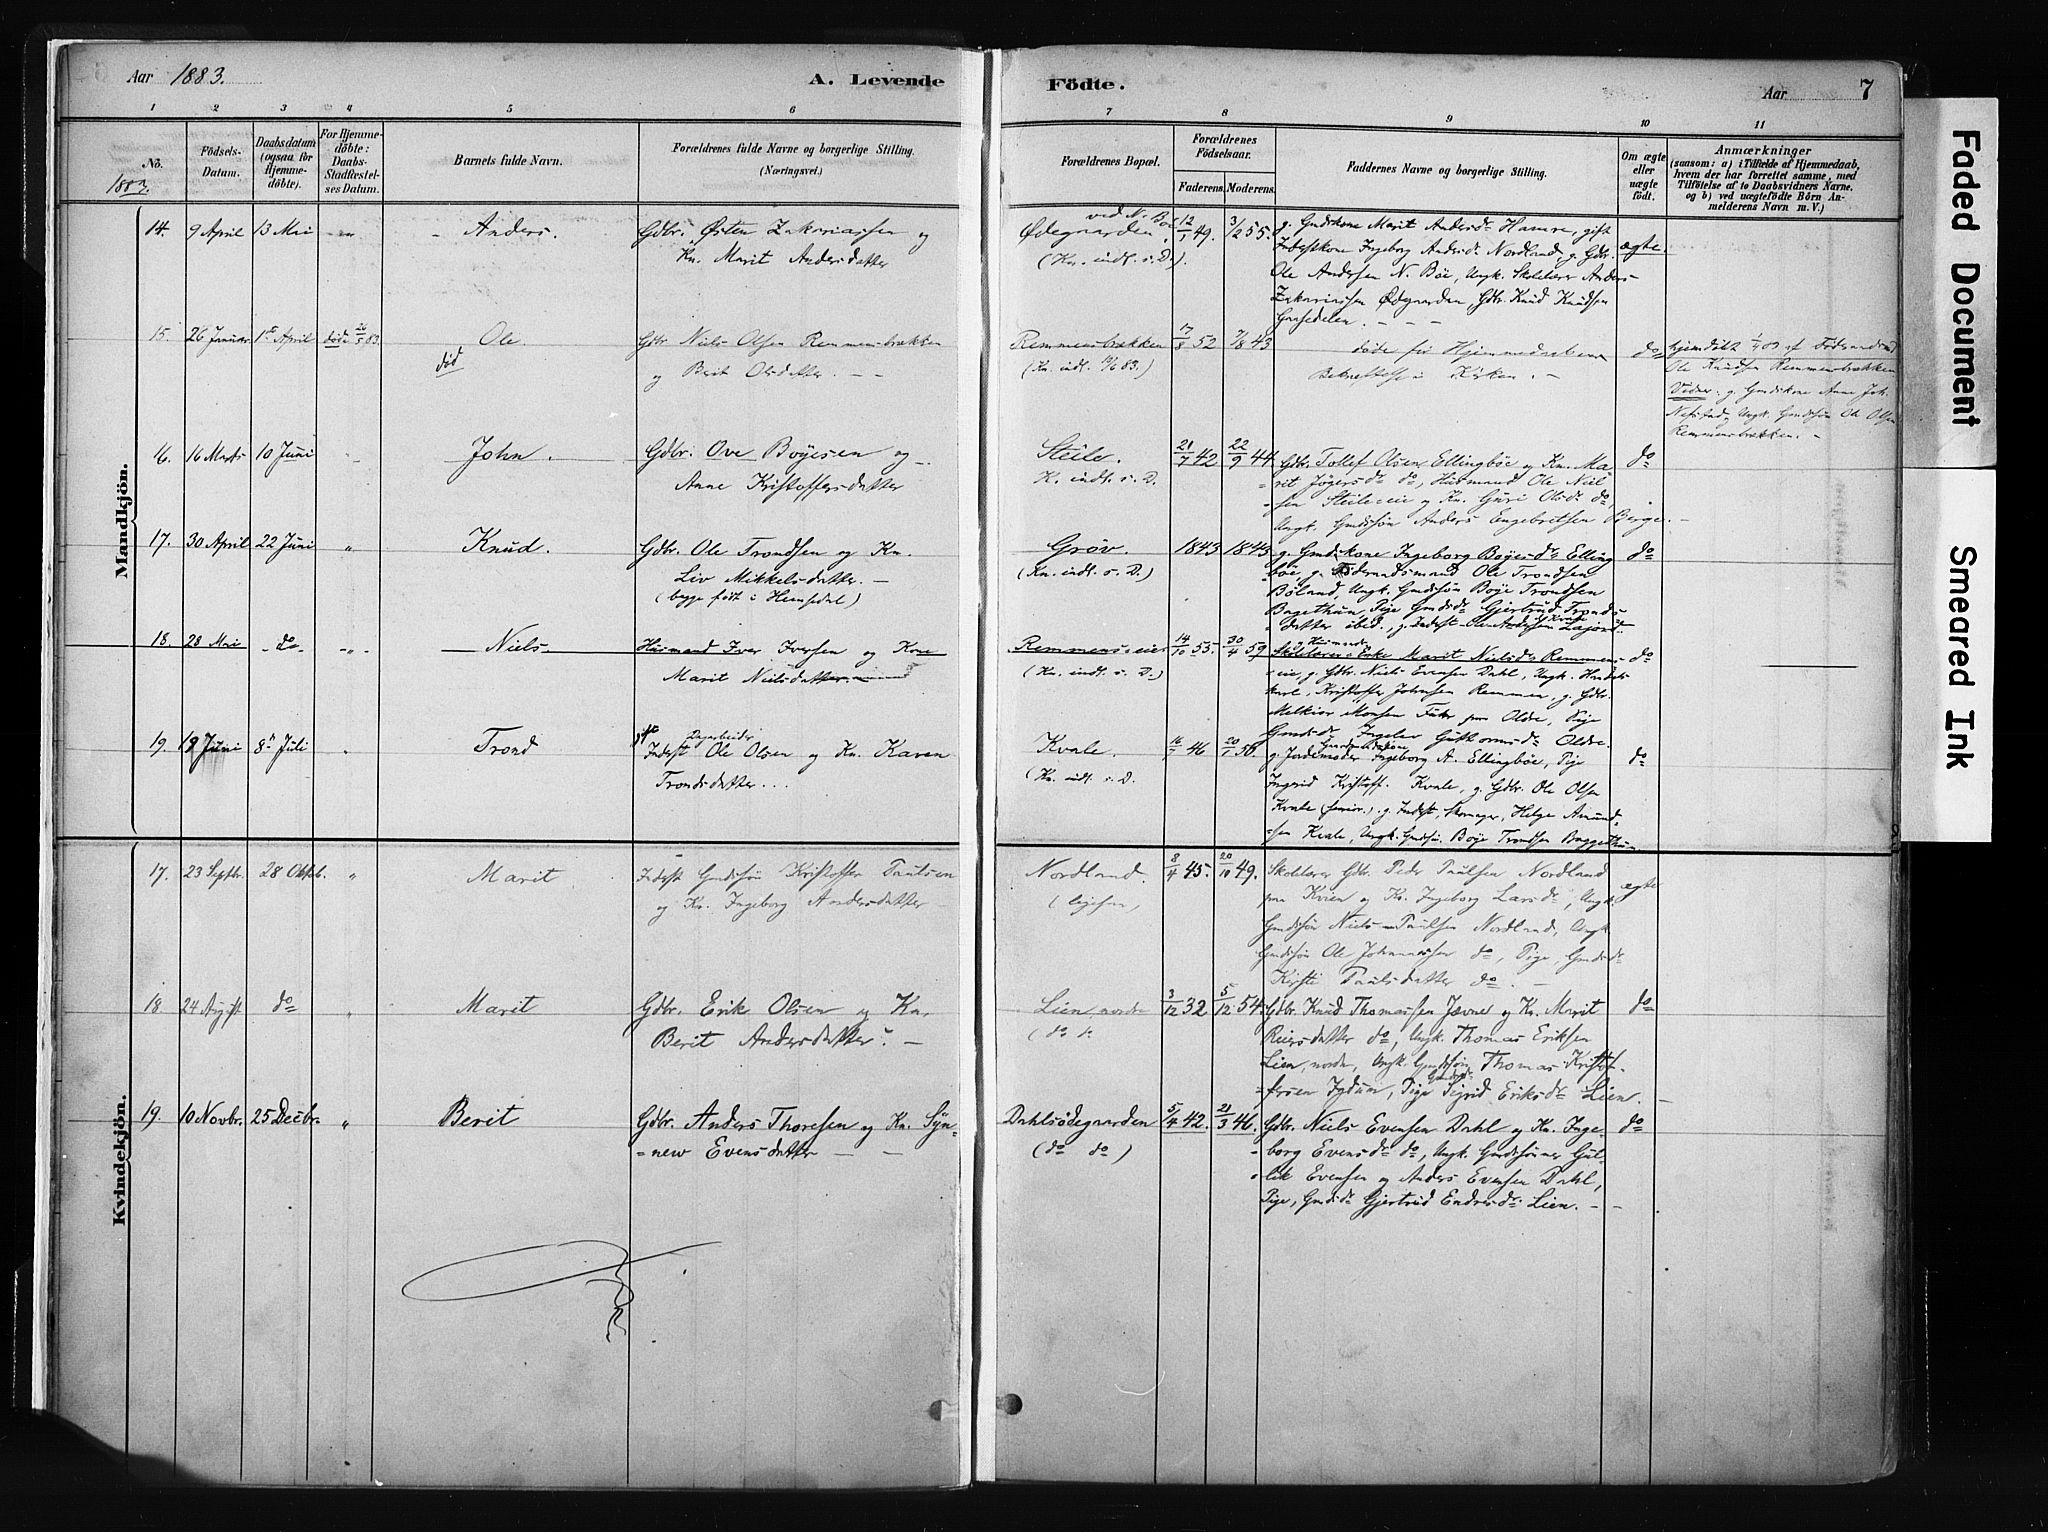 Aar 1883.
A. Levende
Födte.
Aar
7
1 2 3 4 5 6 7 8 9 10 11
No.
1883.
Födsels-Datum.
Daabsdatum (ogsaa for Hjemmedöbte).
For Hjemmedöbte: Daabs-Stadfæstelses Datum.
Barnets fulde Navn.
Forældrenes fulde Navne og borgerlige Stilling. (Næringsvei.)
Forældrenes Bopæl.
Forældrenes Födselsaar.
Faderens. Moderens.
Faddernes Navne og borgerlige Stilling.
Om ægte eller uægte födt.
Anmærkninger
(saasom: a) i Tilfælde af Hjemmedaab, hvem der har forrettet samme, med Tilföielse af to Daabsvidners Navne, og b) ved uægtefödte Börn Anmelderens Navn m. V.)
Mandkjön.
14. 9 April 13 Mai Anders. Gdbr. Østen Zakariassen og
Kn. Marit Andersdatter
ved N. Bøe
Ødegaarden
(Kn. indt. s. D.)
12/1 49. 3/2 55.
g. Gmdskone Marit Andersd. Hamre, gift
Inderstkone Ingeborg Andersd. Nordland, g. Gdbr.
Ole Andersen N. Bøe, Ungk. Skolelærer Anders
Zakariassen Ødegaarden, Gdbr. Knud Knudsen
ægte
15. 26 Januar 1ste April Ole
död
Gdbr Niels Olsen Remmensbrækken
og Berit Olsdatter. — —
Remmensbrækken
(Kn. indt. 10/6 83.)
17/8 52 7/8 43
døde før Hjemmedaabens
Bekræftelse i Kirken. —
do
hjemdöbt af
Ole Knudsen Remmensbrækken
Vidner: g. Gmdskone Anne Joh.
Ungk. Gmdssøn Ole Olsen
Remmensbrækken. —
16. 16 Marts 10 Juni John. Gdbr. Ove Bøyesen og
Anne Kristoffersdatter
Steile.
K. indt. s. D.
21/7 42 22/9 44
Gdbr. Tollef Olsen Ellingbøe og Kn. Ma-
rit Jøgersd. do, Husmand Ole Niel-
sen Steile-eie og Kn. Guri Olsd. do,
Ungk. Gmdssøn Anders Engebritsen Berge. —
do
17. 30 April 22 Juni " Knud. Gdbr. Ole Trondsen og Kn.
Liv Mikkelsdatter. —
(begge født i Hemsedal)
Grøv.
(Kn. indt. s. D.)
1843 1843
g. Gmdskone Ingeborg Bøyesd. Elling-
bøe, g. Ole Trondsen
Bøland, Ungk. Gmdssøn Boje Trondsen
Bagethun, Pige Gmdsd. Gjertrud Tronds-
datter ibid., g. Inderst Ole Andersen
do
18. 28 Mai do Niels Husmand Iver Iversen og Kone
Marit Nielsdatter
Remmens-eie
(Kn. indt. s. D.)
14/10 55. 30/4 59
Husmands
Enke Marit Nielsd. Remmens-
eie, g. Gdbr. Niels Evensen Dahl, Ungk.
Kristoffer Johnsen Remmen, g. Gdbr.
Melkior Monsen Oldre, Pige
Gmdsd. Ingeleiv Guttormsd. Oldre.
do
19. 19 Juni 8de Juli " Trond
Dagarbeider
Inderst Ole Olsen og Kn. Karen
Trondsdatter...
Kvale.
(Kn. indt. s. D.
16/7 46 20/1 56.
g. Jordemoder Ingeborg A. Ellingbøe, Pige
Ingrid Kristoff. Kvale, g. Gdbr. Ole Olsen
Kvale (senior.) g. Inderst, Skomager, Helge Amund-
sen Kvale, Ungk. Gmdssøn Boje Trondsen Baggethun
do
Kvindekjön.
17. 23 Septbr. 28 Oktob. " Marit Inderst Gmdssøn Kristoffer Paulsen
og Kn. Ingeborg Andersdatter
Nordland.
8/4 45. 20/10 49.
Skolelærer Gdbr. Peder Paulsen Nordland
paa Kvien og Kn. Ingeborg Larsd., Ungk.
Gmdssøn Niels Paulsen Nordland, Ungk
Gmdssøn Ole Johannessen do, Pige, Gmdsd.
Kirsti Paulsdatter do. —
ægte
18. 24 August do " Marit Gdbr. Erik Olsen og Kn.
Berit Andersdatter. —
Lien, nordre
3/12 32 5/12 54.
Gdbr. Knud Thomassen Jævne og Kn. Marit
Reiersdatter do, Ungk. Thomas Eriksen
Lien, nordre, Ungk. Gmdssøn Thomas Kristof-
fersen Igdum, Pige Gmdsd. Sigrid Eriksd. Lien. —
do
19. 10 Novbr. 25 Decbr. " Berit Gdbr. Anders Thoresen og Kn. Syn-
new Evensdatter — —
Dahlsødegaarden
(do do)
5/4 42. 21/3 46.
Gdbr. Niels Evensen Dahl og Kn. Inge-
borg Evensd. do, Ungk. Gmdssønner Gul-
lik Evensen og Anders Evensen Dahl,
Pige, Gmdsd. Gjertrud Endresd. Lien. — —
do
Faded Document
Smeared Ink